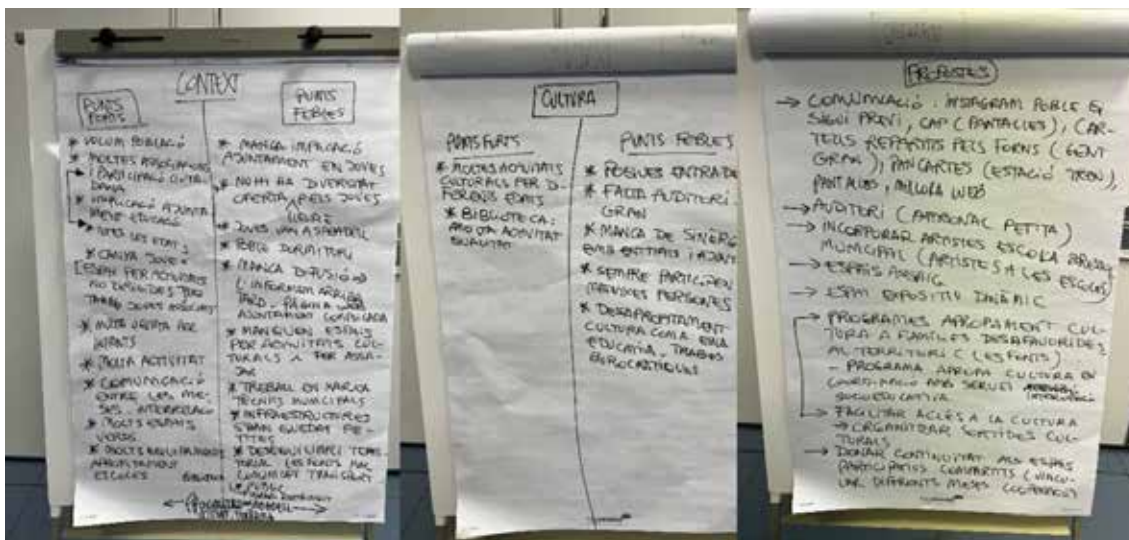 CONTEXT
PUNTS
FORTS
* VOLUM POBLACIÓ
* MOLTES ASSOCIACIONS
I PARTICIPACIÓ CIUTA-
DANA
* IMPLICACIÓ AJUNTA-
MENT EDUCACIÓ
TOTES LES EDATS
* CANYA JOVE
[ESPAI PER ACTIVITATS
NO DIRIGIDES PERÒ
TAMBÉ JOVES
* MOLTA OFERTA PER
INFANTS
* MOLTA ACTIVITAT
* COMUNICACIÓ
ENTRE LES ME-
SES. INTERRELACIÓ
* MOLTS ESPAIS
VERDS
* MOLTS EQUIPAMENTS
ESCOLES
PUNTS
FEBLES
* MANCA IMPLICACIÓ
AJUNTAMENT EN JOVES
* NO HI HA DIVERSITAT
OFERTA PELS JOVES
LLEURE
* JOVES VAN A SABADELL
* POBLE DORMITORI
* MANCA DIFUSIÓ
L'INFORMEM ARRIBA
TARD. PÀGINA WEB
AJUNTAMENT COMPLICADA
* MANQUEN ESPAIS
PER ACTIVITATS CUL-
TURALS I PER ASSA-
JAR
* TREBALL EN XARXA
TÈCNICS MUNICIPALS
* INFRAESTRUCTURES
S'HAN QUEDAT PE-
TITES
* DESEQUILIBRI TERRI-
TORIAL LES FONTS MAL
COMUNICAT TRANSPORT
SABADELL
CULTURA
PUNTS FORTS
* MOLTES ACTIVITATS
CULTURALS PER DI-
FERENTS EDATS
* BIBLIOTECA:
MOLTA ACTIVITAT
QUALITAT
PUNTS FEBLES
* POQUES ENTRADE
* FALTA AUDITORI
GRAN
* MANCA DE SINÈRG
ENTRE ENTITATS I AJUNT
* SEMPRE PARTICIPEN
MATEIXES PERSONES
* DESAPROFITAMENT
CULTURA COM A EINA
EDUCATIVA. TRABES
BUROCRÀTIQUES
PROPOSTES
→ COMUNICACIÓ: INSTAGRAM POBLE Q
SIGUI PREVI, CAP (PANTALLES), CAR-
TELLS REPARTITS PELS FORNS (GENT
GRAN), PANCARTES (ESTACIÓ TREN),
PANTALLES, MILLORA WEB
→ AUDITORI (PATRONAL PETITA)
→ INCORPORAR ARTISTES ESCOLA
MUNICIPAL (ARTISTES A LES ESCOLES)
→ ESPAIS ASSAIG
→ ESPAI EXPOSITIU DINÀMIC
→ PROGRAMES APROPAMENT CUL-
TURA A FAMÍLIES DESAFAVORIDES
AL TERRITORI (LES FONTS)
- PROGRAMA APROPA CULTURA EN
COORDINACIÓ AMB SERVEI INTERVENCIÓ
SOCIOEDUCATIVA.
→ FACILITAR ACCÉS A LA CULTURA
→ ORGANITZAR SORTIDES CUL-
TURALS
→ DONAR CONTINUÏTAT ALS ESPAIS
PARTICIPATIUS COMPARTITS (VINCU-
LAR DIFERENTS MESES